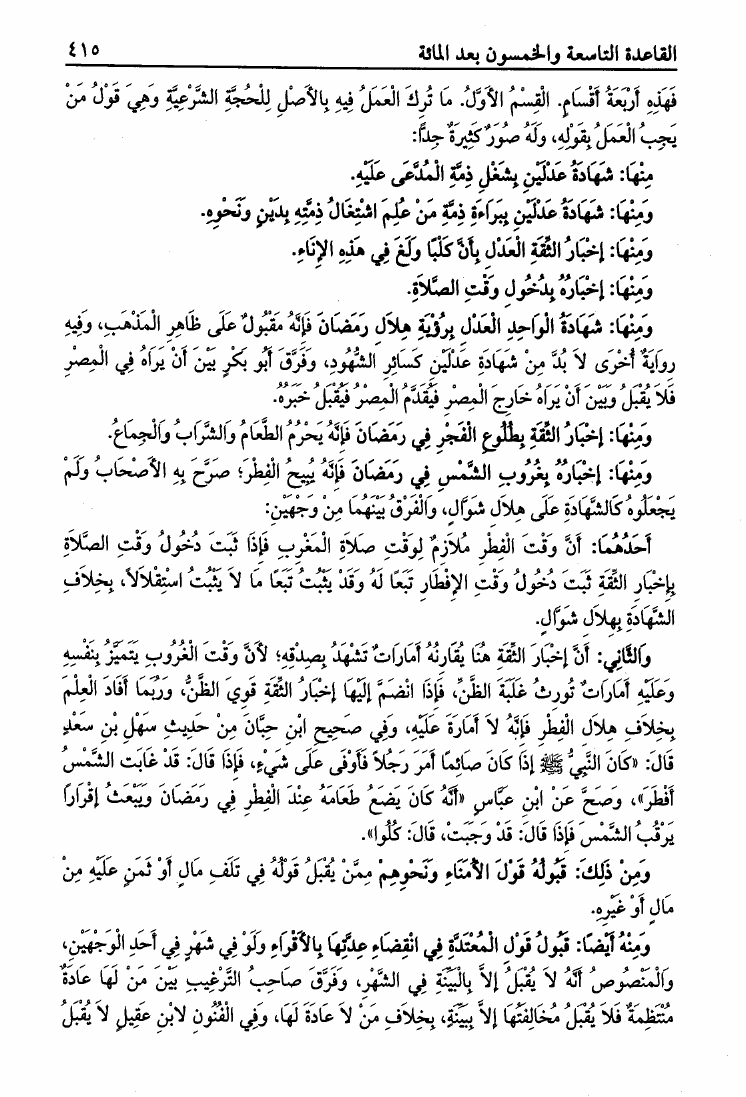 القاعدة التاسعة والخمسون بعد المائة ٤١٥
فَهَذِهِ أَرْبَعَةُ أَقْسَامٍ. الْقِسْمُ الأَوَّلُ. مَا تُرِكَ الْعَمَلُ فِيهِ بِالأَصْلِ لِلْحُجَّةِ الشَّرْعِيَّةِ وَهِيَ قَوْلُ مَنْ
يَجِبُ الْعَمَلُ بِقَوْلِهِ، وَلَهُ صُوَرٌ كَثِيرَةٌ جِدًّا:
مِنْهَا: شَهَادَةُ عَدْلَيْنِ بِشَغْلِ ذِمَّةِ الْمُدَّعَى عَلَيْهِ.
وَمِنْهَا: شَهَادَةُ عَدْلَيْنِ بِبَرَاءَةِ ذِمَّةِ مَنْ عُلِمَ اشْتِغَالُ ذِمَّتِهِ بِدَيْنٍ وَنَحْوِهِ.
وَمِنْهَا: إِخْبَارُ الثِّقَةِ الْعَدْلِ بِأَنَّ كَلْبًا وَلَغَ فِي هَذِهِ الإِنَاءِ.
وَمِنْهَا: إِخْبَارُهُ بِدُخُولِ وَقْتِ الصَّلاَةِ.
وَمِنْهَا: شَهَادَةُ الْوَاحِدِ الْعَدْلِ بِرُؤْيَةِ هِلاَلِ رَمَضَانَ فَإِنَّهُ مَقْبُولٌ عَلَى ظَاهِرِ الْمَذْهَبِ، وَفِيهِ
رِوَايَةٌ أُخْرَى لاَ بُدَّ مِنْ شَهَادَةِ عَدْلَيْنِ كَسَائِرِ الشُّهُودِ، وَفَرَّقَ أَبُو بَكْرٍ بَيْنَ أَنْ يَرَاهُ فِي الْمِصْرِ
فَلاَ يُقْبَلُ وَبَيْنَ أَنْ يَرَاهُ خَارِجَ الْمِصْرِ فَيُقَدَّمُ الْمِصْرُ فَيُقْبَلُ خَبَرُهُ.
وَمِنْهَا: إِخْبَارُ الثِّقَةِ بِطُلُوعِ الْفَجْرِ فِي رَمَضَانَ فَإِنَّهُ يَحْرُمُ الطَّعَامُ وَالشَّرَابُ وَالْجِمَاعُ.
وَمِنْهَا: إِخْبَارُهُ بِغُرُوبِ الشَّمْسِ فِي رَمَضَانَ فَإِنَّهُ يُبِيحُ الْفِطْرَ؛ صَرَّحَ بِهِ الأَصْحَابُ وَلَمْ
يَجْعَلُوهُ كَالشَّهَادَةِ عَلَى هِلاَلِ شَوَّالٍ، وَالْفَرْقُ بَيْنَهُمَا مِنْ وَجْهَيْنِ:
أَحَدُهُمَا: أَنَّ وَقْتَ الْفِطْرِ مُلاَزِمٌ لِوَقْتِ صَلاَةِ الْمَغْرِبِ فَإِذَا ثَبَتَ دُخُولُ وَقْتِ الصَّلاَةِ
بِإِخْبَارِ الثِّقَةِ ثَبَتَ دُخُولُ وَقْتِ الإِفْطَارِ تَبَعًا لَهُ وَقَدْ يَثْبُتُ تَبَعًا مَا لاَ يَثْبُتُ اسْتِقْلاَلاً، بِخِلاَفِ
الشَّهَادَةِ بِهِلاَلِ شَوَّالٍ.
وَالثَّانِي: أَنَّ إِخْبَارَ الثِّقَةِ هُنَا يُقَارِنُهُ أَمَارَاتٌ تَشْهَدُ بِصِدْقِهِ؛ لأَنَّ وَقْتَ الْغُرُوبِ يَتَمَيَّزُ بِنَفْسِهِ
وَعَلَيْهِ أَمَارَاتٌ تُورِثُ غَلَبَةَ الظَّنِّ، فَإِذَا انْضَمَّ إِلَيْهَا إِخْبَارُ الثِّقَةِ قَوِيَ الظَّنُّ، وَرُبَّمَا أَفَادَ الْعِلْمَ
بِخِلاَفِ هِلاَلِ الْفِطْرِ فَإِنَّهُ لاَ أَمَارَةَ عَلَيْهِ، وَفِي صَحِيحِ ابْنِ حِبَّانَ مِنْ حَدِيثِ سَهْلِ بْنِ سَعْدٍ
قَالَ: «كَانَ النَّبِيُّ ﷺ إِذَا كَانَ صَائِمًا أَمَرَ رَجُلاً فَأَوْفَى عَلَى شَيْءٍ، فَإِذَا قَالَ: قَدْ غَابَتِ الشَّمْسُ
أَفْطَرَ»، وَصَحَّ عَنْ ابْنِ عَبَّاسٍ «أَنَّهُ كَانَ يَضَعُ طَعَامَهُ عِنْدَ الْفِطْرِ فِي رَمَضَانَ وَيَبْعَثُ إِقْرَارًا
يَرْقُبُ الشَّمْسَ فَإِذَا قَالَ: قَدْ وَجَبَتْ، قَالَ: كُلُوا».
وَمِنْ ذَلِكَ: قَبُولُهُ قَوْلَ الأُمَنَاءِ وَنَحْوِهِمْ مِمَّنْ يُقْبَلُ قَوْلُهُ فِي تَلَفِ مَالٍ أَوْ ثَمَنٍ عَلَيْهِ مِنْ
مَالٍ أَوْ غَيْرِهِ.
وَمِنْهُ أَيْضًا: قَبُولُ قَوْلِ الْمُعْتَدَّةِ فِي انْقِضَاءِ عِدَّتِهَا بِالأَقْرَاءِ وَلَوْ فِي شَهْرٍ فِي أَحَدِ الْوَجْهَيْنِ،
وَالْمَنْصُوصُ أَنَّهُ لاَ يُقْبَلُ إِلاَّ بِالْبَيِّنَةِ فِي الشَّهْرِ، وَفَرَّقَ صَاحِبُ التَّرْغِيبِ بَيْنَ مَنْ لَهَا عَادَةٌ
مُنْتَظِمَةٌ فَلاَ يُقْبَلُ مُخَالِفَتُهَا إِلاَّ بِبَيِّنَةٍ، بِخِلاَفِ مَنْ لاَ عَادَةَ لَهَا، وَفِي الْفُنُونِ لابْنِ عَقِيلٍ لاَ يُقْبَلُ